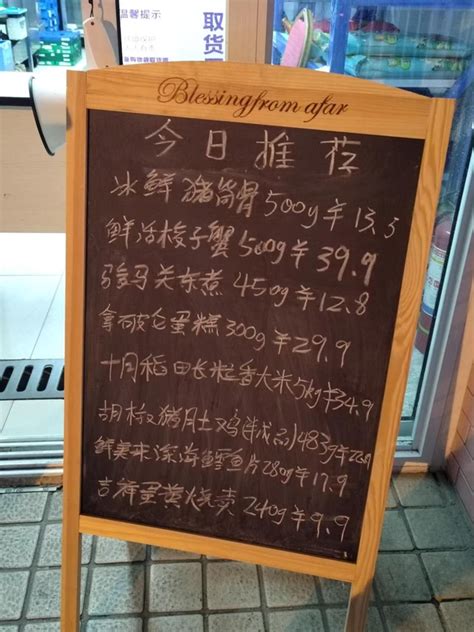 温馨提示
取货
Blessing from afar
今日推荐
冰鲜猪筒骨500g¥13.5
鲜活梭子蟹500g¥39.9
骏马关东煮450g¥12.8
拿破仑蛋糕300g¥29.9
十月稻田长粒香大米5kg¥34.9
胡椒猪月土鸡(成品)483g¥
鲜美来深海鳕鱼片280g¥17.9
吉祥蛋黄烧卖240g¥9.9